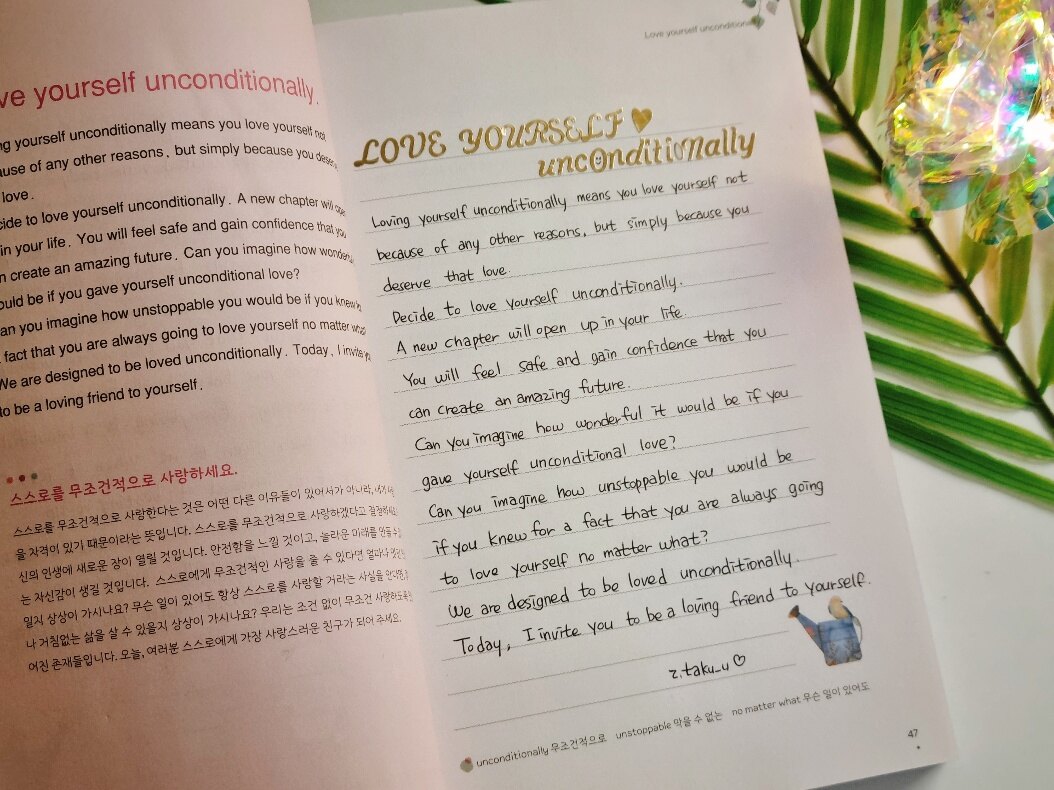 ve yourself unconditionally.
ng yourself unconditionally means you love yourself not
ause of any other reasons, but simply because you deserve
love.
cide to love yourself unconditionally. A new chapter will open
in your life. You will feel safe and gain confidence that you
n create an amazing future. Can you imagine how wonderful
ould be if you gave yourself unconditional love?
an you imagine how unstoppable you would be if you knew
fact that you are always going to love yourself no matter what
We are designed to be loved unconditionally. Today, I invite you
to be a loving friend to yourself.
스스로를 무조건적으로 사랑하세요.
스스로를 무조건적으로 사랑한다는 것은 어떤 다른 이유들이 있어서가 아니라,
을 자격이 있기 때문이라는 뜻입니다. 스스로를 무조건적으로 사랑하겠다고
신의 인생에 새로운 장이 열릴 것입니다. 안전함을 느낄 것이고, 놀라운 미래를
는 자신감이 생길 것입니다. 스스로에게 무조건적인 사랑을 줄 수 있다면
일지 상상이 가시나요? 무슨 일이 있어도 항상 스스로를 사랑할 거라는 사실을
나 거침없는 삶을 살 수 있을지 상상이 가시나요? 우리는 조건 없이 무조건
어진 존재들입니다. 오늘, 여러분 스스로에게 가장 사랑스러운 친구가 되어 주세요.
Love yourself unconditionally
LOVE YOURSELF
unconditionally
Loving yourself unconditionally means you love yourself not
because of any other reasons, but simply because you
deserve that love.
Decide to love yourself unconditionally.
A new chapter will open up in your life.
You will feel safe and gain confidence that you
can create an amazing future.
Can you imagine how wonderful it would be if you
gave yourself unconditional love?
Can you imagine how unstoppable you would be
if you knew for a fact that you are always going
to love yourself no matter what?
We are designed to be loved unconditionally.
Today, I invite you to be a loving friend to yourself.
z.taku_u♡
unconditionally 무조건적으로 unstoppable 막을 수 없는 no matter what 무슨 일이 있어도
47